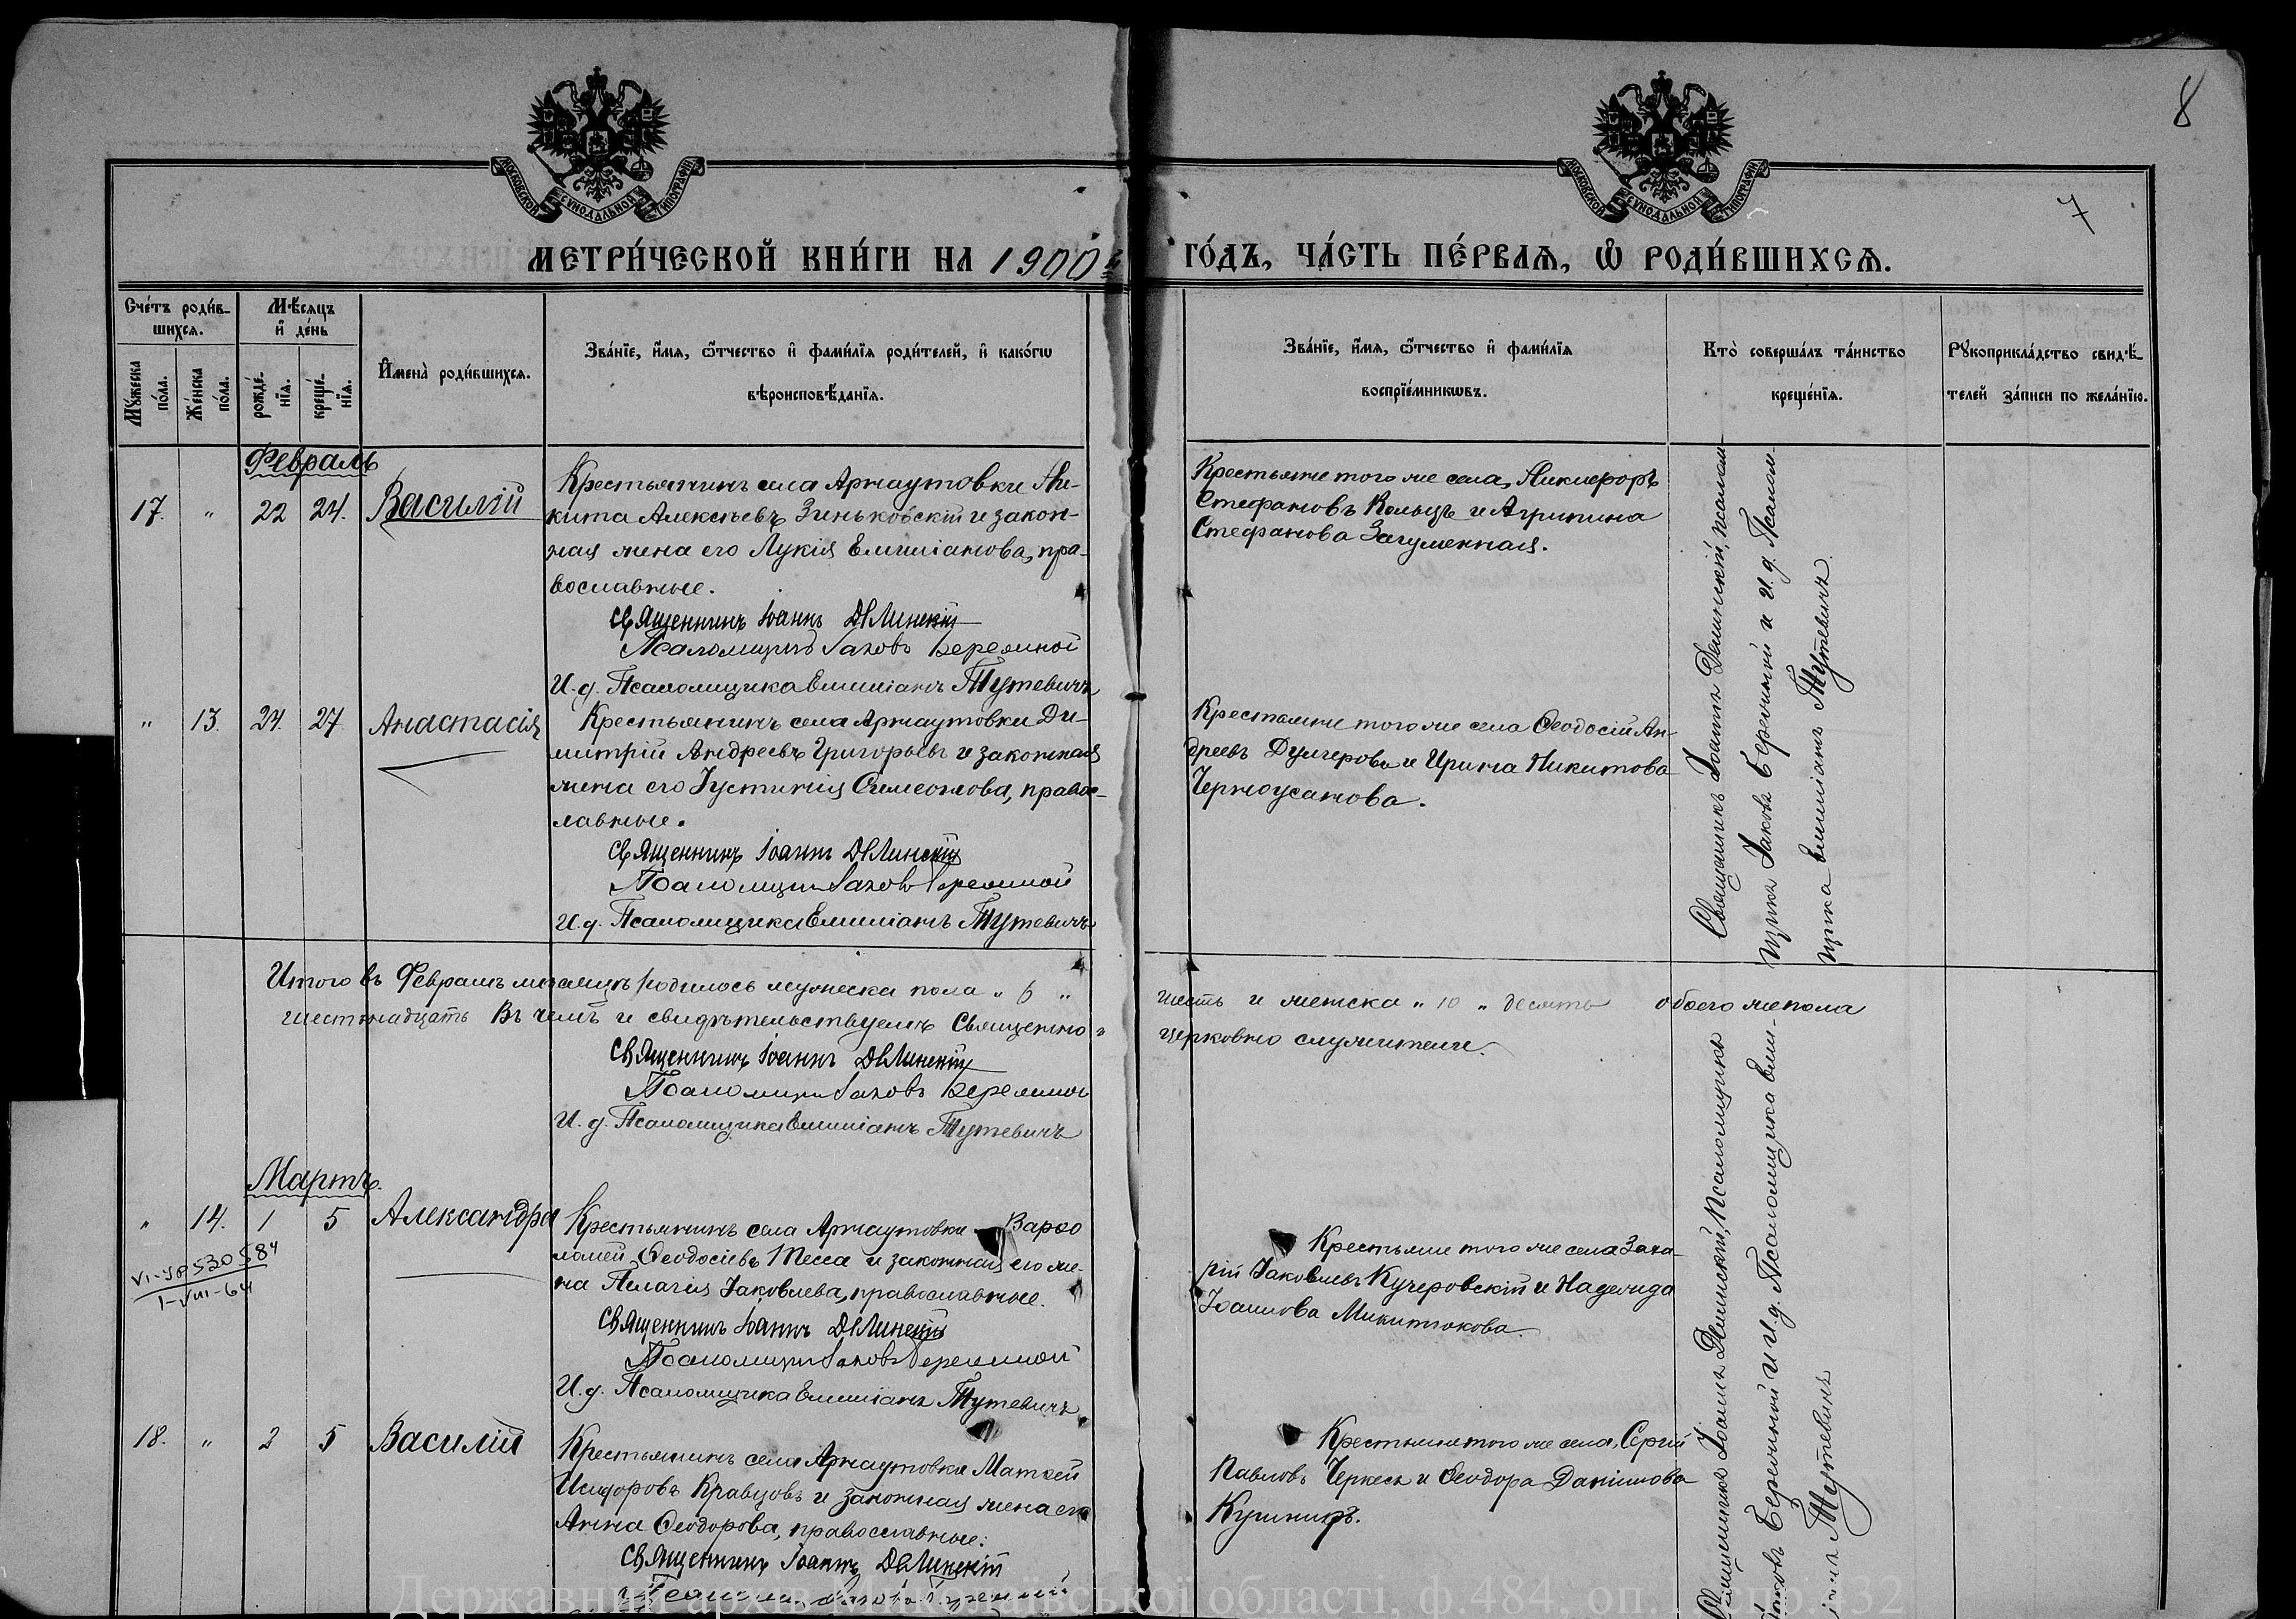 8
7
МОСКОВСКОЙ СУНОДАЛЬНОЙ ТИПОГРАФІИ
МОСКОВСКОЙ СУНОДАЛЬНОЙ ТИПОГРАФІИ
МЕТРИ́ЧЕСКОЙ КНИ́ГИ НА 1900й ГО́ДЪ, ЧА́СТЬ ПЕ́РВАѦ, Ѽ РОДИ́ВШИХСѦ.
Сче́тъ роди́в-
шихсѧ.
Мꙋ́жеска
по́ла.
Же́нска
по́ла.
Мѣ́сяцъ
и҆ де́нь
рожде́-
нїѧ.
креще́-
нїѧ.
И҆мена̀ роди́вшихсѧ.
Зва́нїе, и҆́мѧ, ѻ҆́тчество и҆ фами́лїѧ роди́телей, и҆ како́гѡ
вѣроисповѣ́данїѧ.
Зва́нїе, и҆́мѧ, ѻ҆́тчество и҆ фами́лїѧ
воспрїе́мникѡвъ.
Кто̀ соверша́лъ та́инство
креще́нїѧ.
Рꙋкоприкла́дство свидѣ́-
телей за́писи по жела́нїю.
Февраль
17. " 22 24. Василій
Крестьянинъ села Арнаутовки Ни-
кита Алексѣевъ Зиньковскій и закон-
ная жена его Лукія Емиліанова, пра-
вославные.
Священникъ Іоаннъ Дѣлинскій
Псаломщикъ Іаковъ Бережной
И. д. Псаломщика Емиліанъ Тутевичъ
Крестьяне того же села, Никифоръ
Стефановъ Кольцъ и Агрипина
Стефанова Загуменная.
Священникъ Іоаннъ Делинскій, псалом-
щикъ Іаковъ Бережной и И. д. Псалом-
щика Емиліанъ Тутевичъ.
" 13. 24. 27 Анастасія
Крестьянинъ села Арнаутовки Ди-
митрій Андреевъ Григорьевъ и законная
жена его Іустинія Симеонова, правос-
лавные.
Священникъ Іоаннъ Дѣлинскій
Псаломщикъ Іаковъ Бережной
И. д. Псаломщика Емиліанъ Тутевичъ
Крестьяне того же села Ѳеодосій Ан-
дреевъ Дулгеровъ и Ирина Никитова
Черноусанова.
Итого въ Февралѣ мѣсяцѣ родилось мужеска пола " 6 " шесть и женска " 10 " десять обоего же пола
шестнадцать Въ чемъ и свидѣтельствуемъ Священно церковно служители.
Священникъ Іоаннъ Дѣлинскій
Псаломщикъ Іаковъ Бережной
И. д. Псаломщика Емиліанъ Тутевичъ
Мартъ.
" 14. 1 5 Александра
1-VIII-64
Крестьянинъ села Арнаутовки Варѳо
ломей Ѳеодосіевъ Тесса и законная его же-
на Пелагія Іаковлева, православные.
Священникъ Іоаннъ Дѣлинскій
Псаломщикъ Іаковъ Бережной
И. д. Псаломщика Емиліанъ Тутевичъ
Крестьяне того же села Заха-
рій Іаковлевъ Кучеровскій и Надежда
Іоаннова Микитюкова.
Священникъ Іоаннъ Дѣлинскій, Псаломщикъ
Іаковъ Бережной и И. д. Псаломщика Еми-
ліанъ Тутевичъ
18. " 2 5 Василій
Крестьянинъ села Арнаутовки Матѳей
Исидоровъ Кравцовъ и законная жена его
Анна Ѳеодорова, православные.
Священникъ Іоаннъ Дѣлинскій
Псаломщикъ Іаковъ Бережной
Крестьяне того же села, Сергій
Павловъ Черкесъ и Ѳеодора Даніилова
Кушниръ.
Державний архів Миколаївської області, ф.484, оп.